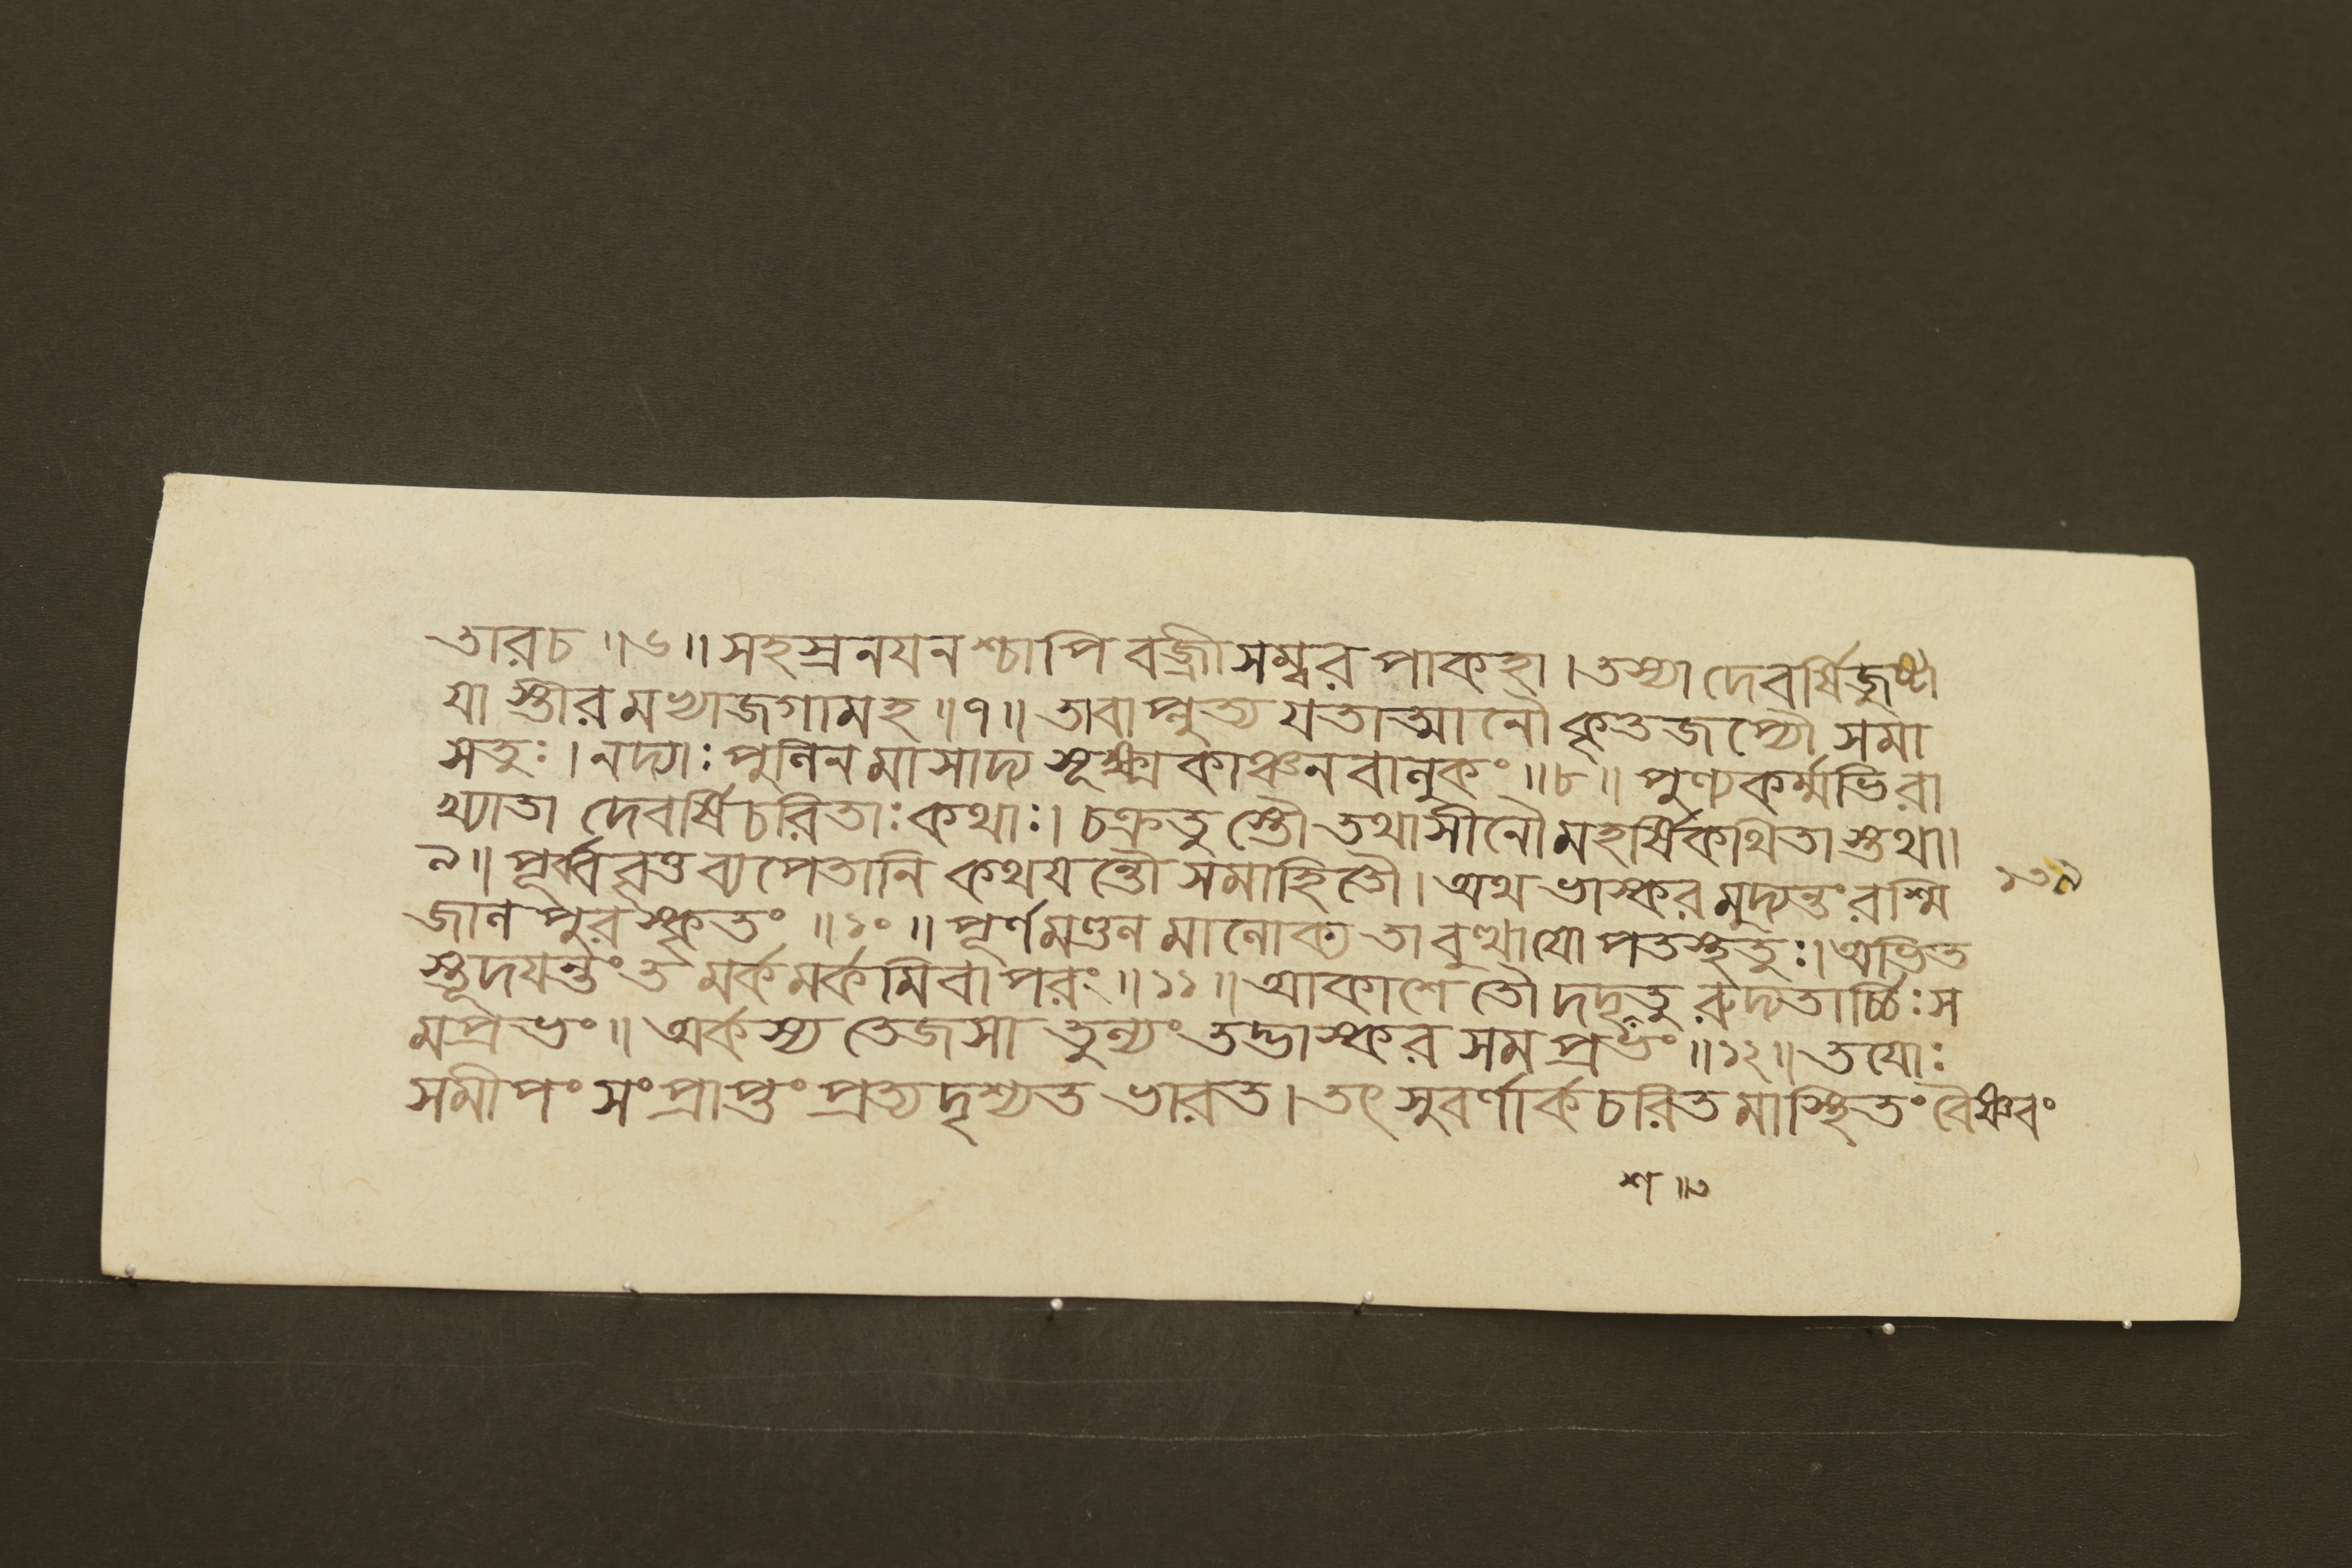 তারচ ॥৬॥ সহস্রনযনশ্চাপি বজ্রীসম্বর পাকহা । তস্যা দেবর্ষিজুষ্টা
যা স্তীরমভ্যাজগামহ ॥৭॥ তাবাপ্লুত্য যতাত্মানৌ কৃতজপ্যৌ সমা
সতুঃ । নদ্যাঃ পুলিনমাসাদ্য সূক্ষ্মকাঞ্চনবালুকং ॥৮॥ পুণ্যকর্ম্মাভিরা
খ্যাতা দেবর্ষিচরিতাঃ কথাঃ । চক্রতুস্তৌ তথাসীনৌ মহর্ষিকথিতাস্তথা ॥
৯॥ পূর্ব্ববৃত্তব্যপেতানি কথযন্তৌ সমাহিতৌ । অথ ভাস্করমুদ্যন্তং রশ্মি
জালপুরস্কৃতং ॥১০॥ পূর্ণমণ্ডলমালোক্য তাবুত্থাযোপতস্থতুঃ । অভিত
স্তূদযন্তং তমর্কমর্কমিবাপরং ॥১১॥ আকাশে তৌ দদৃতু রুদ্যতার্চ্চিঃস
মপ্রভং ॥ অর্কস্য তেজসা তুল্যং তদ্ভাস্করসমপ্রভং ॥১২॥ তযোঃ
সমীপং সংপ্রাপ্তং প্রত্যদৃশ্যত ভারত । তৎ সুবর্ণার্কচরিতমাস্থিতং বৈষ্ণবং
১৩৯
শা ॥৩